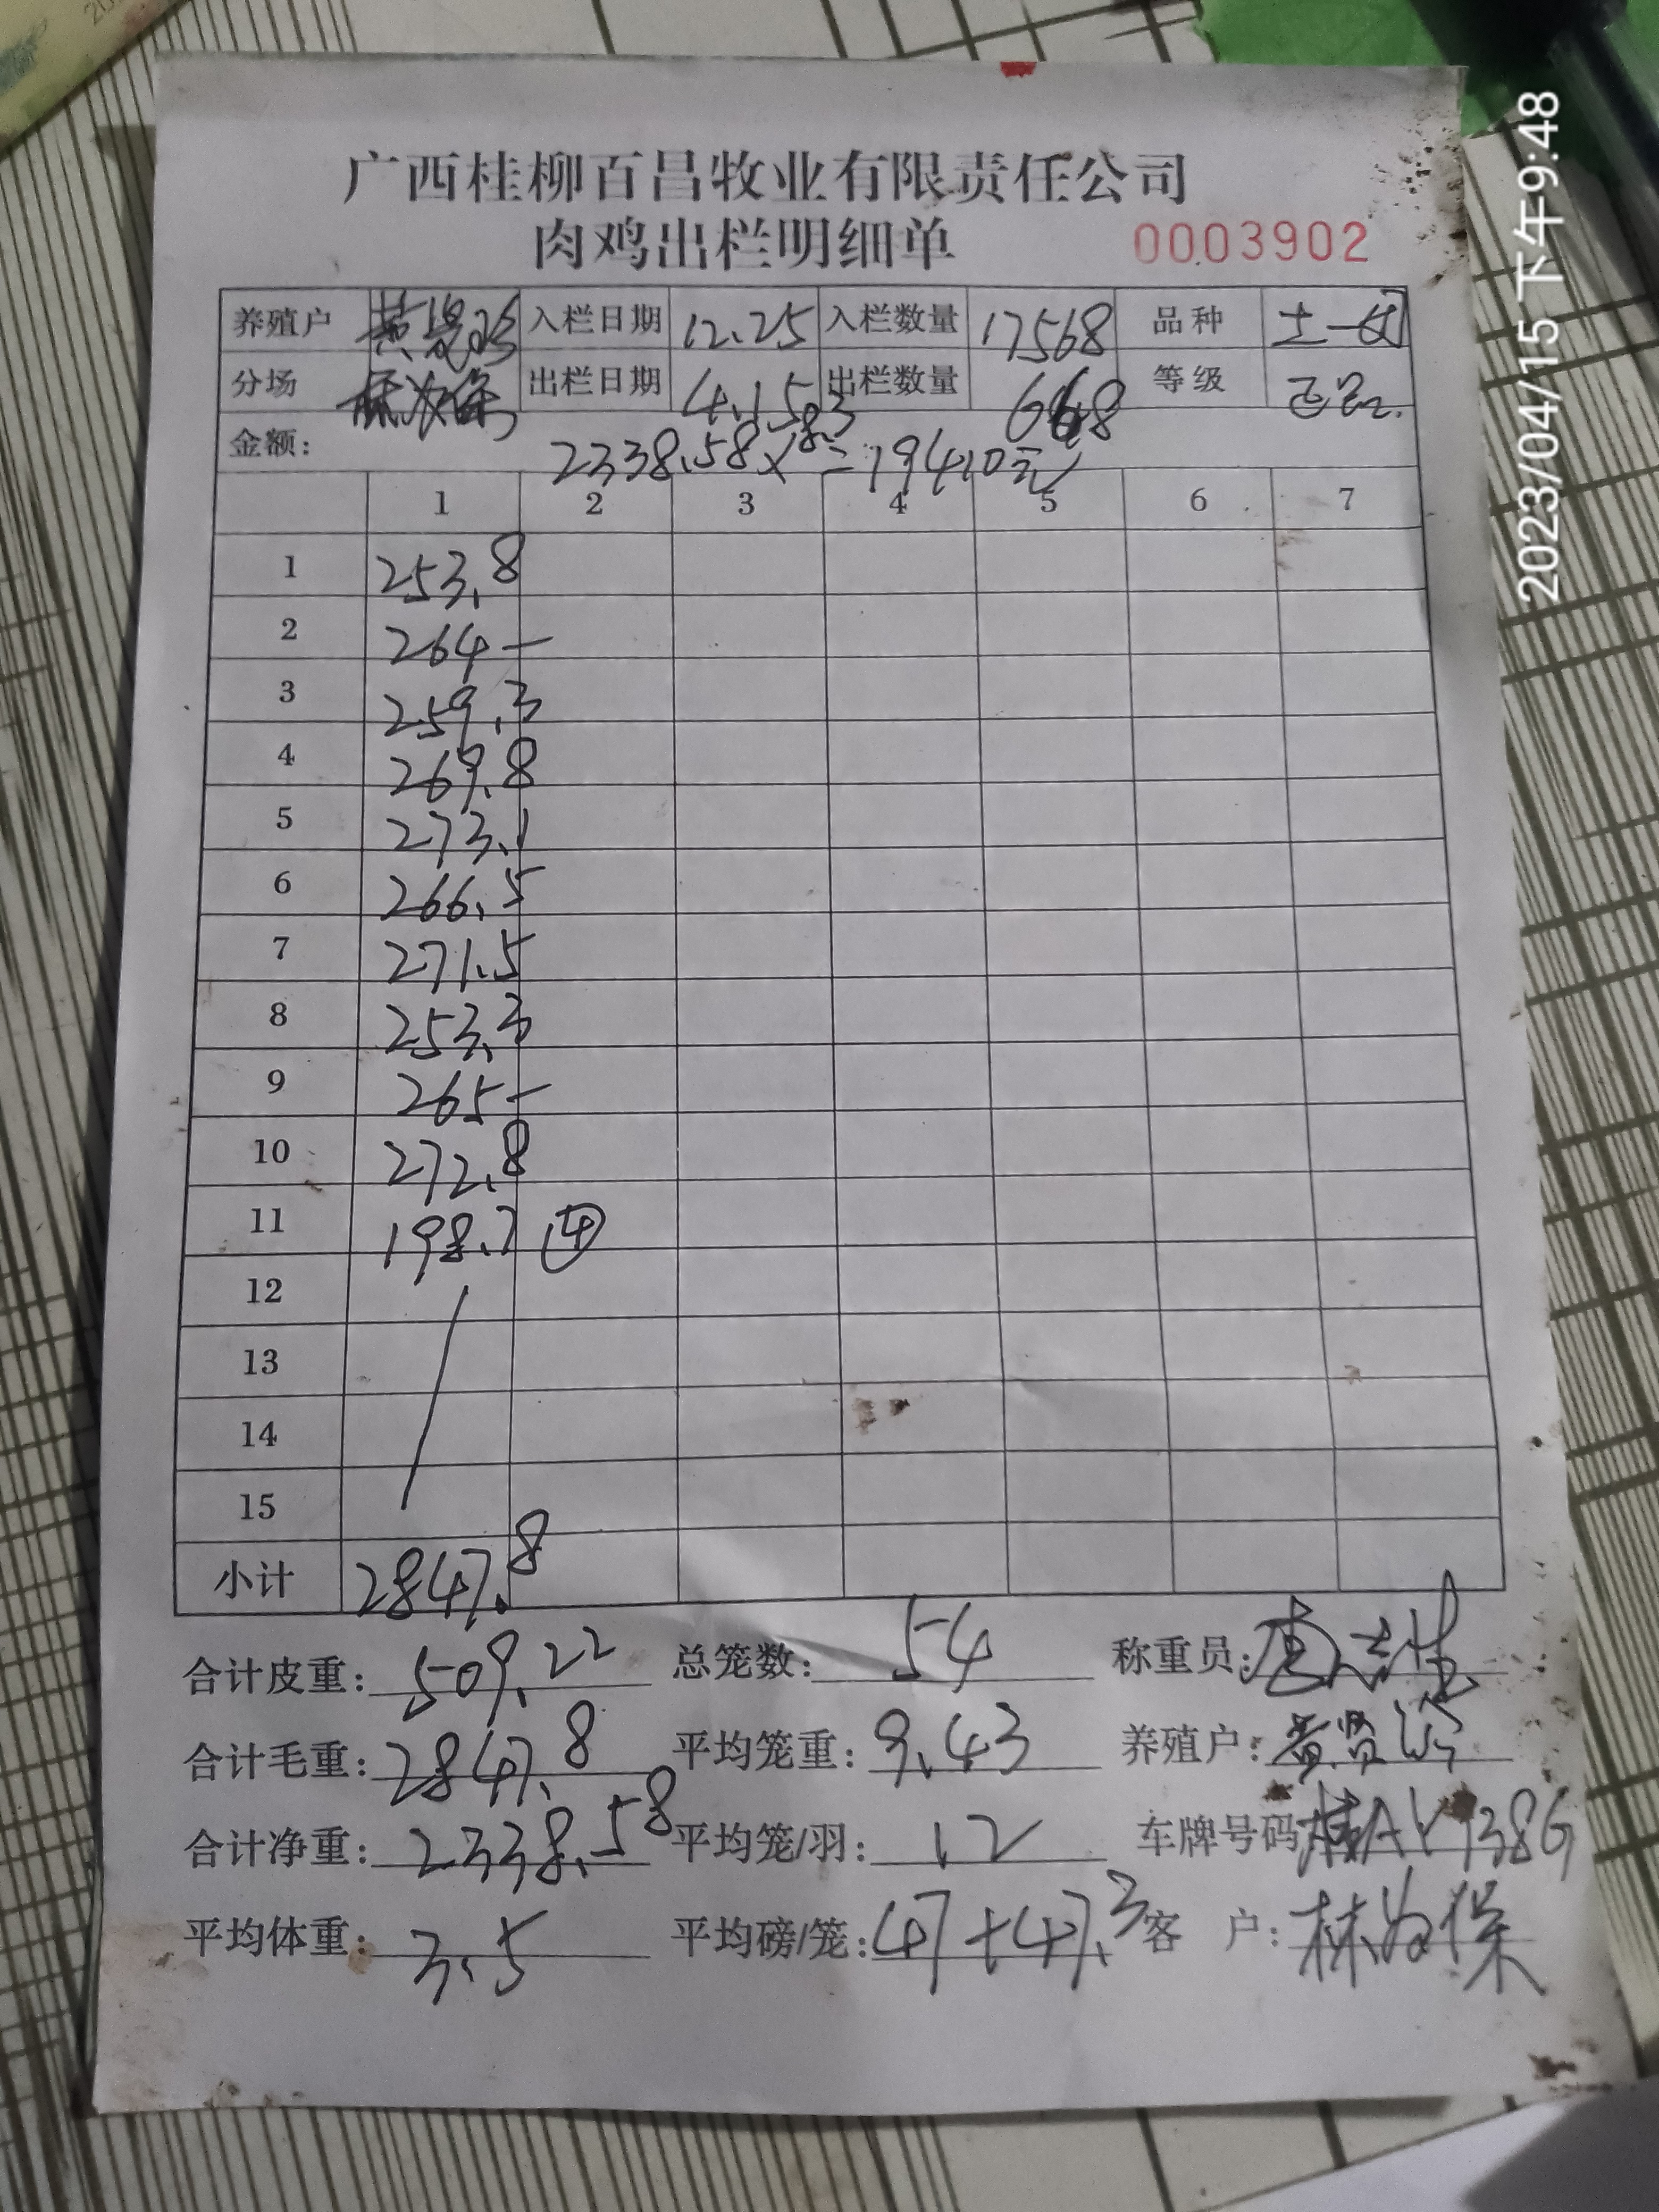 广西桂柳百昌牧业有限责任公司
肉鸡出栏明细单 0003902
养殖户 入栏日期 12.25 入栏数量 17568 品种 土一
分场 出栏日期 4.15 出栏数量 668 等级 正品
金额: 2338.58×8.3=19410元
1 2 3 4 5 6 7
1 253.8
2 264-
3 259.3
4 269.8
5 273.1
6 266.5
7 271.5
8 253.3
9 265-
10 272.8
11 198.7 ④
12
13
14
15
小计 2847.8
合计皮重: 509.22 总笼数: 54 称重员:
合计毛重: 2847.8 平均笼重: 9.43 养殖户:
合计净重: 2338.58 平均笼/羽: 12 车牌号码
平均体重: 3.5 平均磅/笼: 47+47.3 客 户: 林为保
2023/04/15 下午9:48